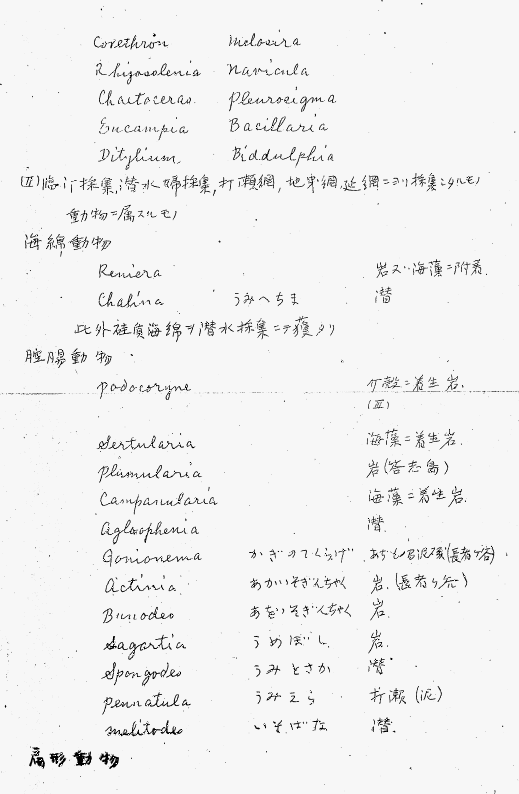 Corethron Melosira
Rhizosolenia Navicula
Chaetoceras Pleurosigma
Eucampia Bacillaria
Ditylium Biddulphia
(Ⅱ) 採集,潜水婦採集,打瀬網,地曳網,延網ニヨリ採集シタルモノ
動物ニ属スルモノ
海綿動物
Reniera 岩又ハ海藻ニ附着
Chalina うみへちま 潜
此外硅質海綿ヲ潜水採集ニテ獲タリ
腔腸動物
Podocoryne 介殻ニ着生 岩.
(Ⅲ)
Sertularia 海藻ニ着生 岩.
Plumularia 岩(答志島)
Campanularia 海藻ニ着生 岩.
Aglaophenia 潜.
Gonionema かぎのてくらげ あぢも (長者ヶ谷)
Actinia あかいそぎんちゃく 岩.(長者ヶ谷)
Bunodes あをいそぎんちゃく 岩.
Sagartia うめぼし 岩.
Spongodes うみとさか 潜
Pennatula うみえら 打瀬(泥)
Melitodes いそばな 潜.
扁形動物